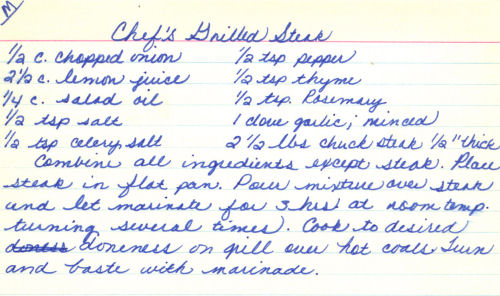 M
Chef's Grilled Steak
1/2 c. chopped onion 1/2 tsp pepper
2 1/2 c. lemon juice 1/2 tsp thyme
1/4 c. salad oil 1/2 tsp. Rosemary
1/2 tsp salt 1 clove garlic; minced
1/2 tsp celery salt 2 1/2 lbs chuck steak 1/2" thick
Combine all ingredients except steak. Place
steak in flat pan. Pour mixture over steak
and let marinate for 3 hrs at room temp.
turning several times). Cook to desired
doneness on grill over hot coals. Turn
and baste with marinade.